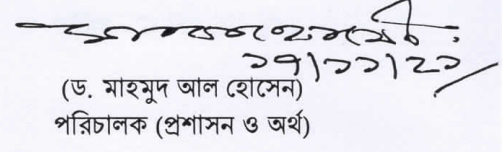 ১৭|১১|২১
(ড. মাহমুদ আল হোসেন)
পরিচালক (প্রশাসন ও অর্থ)